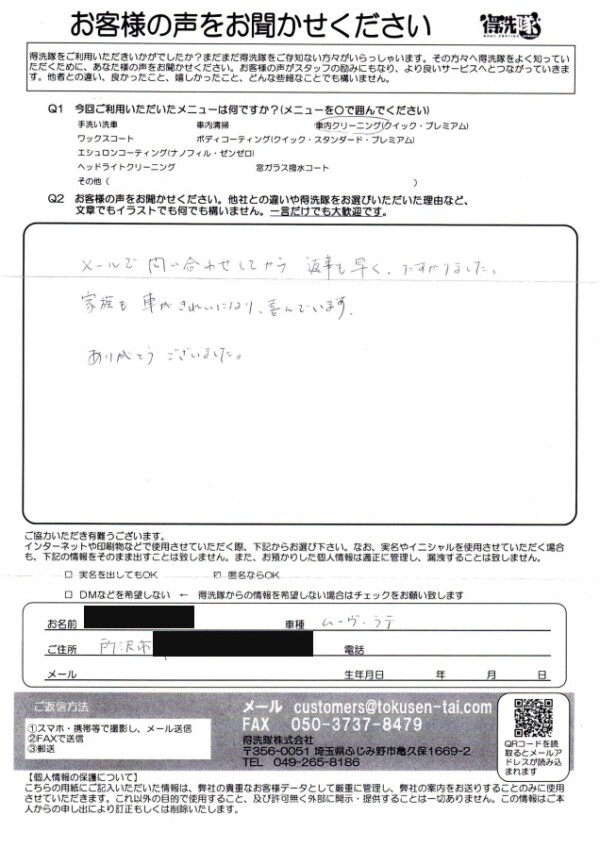 お客様の声をお聞かせください
得洗隊
得洗隊をご利用いただきいかがでしたか？まだまだ得洗隊をご存知ない方々がいらっしゃいます。その方々へ得洗隊をよく知っていただくために、あなた様の声をお聞かせください。お客様の声がスタッフの励みにもなり、より良いサービスへとつながっていきます。他者との違い、良かったこと、嬉しかったこと、どんな些細なことでも構いません。
Q1 今回ご利用いただいたメニューは何ですか？(メニューを○で囲んでください)
手洗い洗車 車内清掃 車内クリーニング(クイック・プレミアム)
ワックスコート ボディコーティング(クイック・スタンダード・プレミアム)
エシュロンコーティング(ナノフィル・ゼンゼロ)
ヘッドライトクリーニング 窓ガラス撥水コート
その他 ( )
Q2 お客様の声をお聞かせください。他社との違いや得洗隊をお選びいただいた理由など、
文章でもイラストでも何でも構いません。一言だけでも大歓迎です。
メールで問い合わせしてから 返事も早く、たすかりました。
家族も 車がきれいになり、喜んでいます。
ありがとう ございました。
ご協力いただき有難うございます。
インターネットや印刷物などで使用させていただく際、下記からお選び下さい。なお、実名やイニシャルを使用させていただく場合も、下記の情報をそのまま出すことは致しません。また、お預かりした個人情報は適正に管理し、漏洩することは致しません。
□ 実名を出してもOK ☑ 匿名ならOK
□ DMなどを希望しない ← 得洗隊からの情報を希望しない場合はチェックをお願い致します
お名前 車種 ムーヴ・ラテ
ご住所 所沢市 電話
メール 生年月日 年 月 日
ご返信方法
①スマホ・携帯等で撮影し、メール送信
②FAXで送信
③郵送
メール customers@tokusen-tai.com
FAX 050-3737-8479
得洗隊株式会社
〒356-0051 埼玉県ふじみ野市亀久保1669-2
TEL 049-265-8186
QRコードを読
取るとメールア
ドレスが読み込
まれます
【個人情報の保護について】
こちらの用紙にご記入いただいた情報は、弊社の貴重なお客様データとして厳重に管理し、弊社の案内をお送りすることのみに使用させていただきます。これ以外の目的で使用すること、及び許可無く外部に開示・提供することは一切ありません。この情報はご本人からの申し出により訂正もしくは削除いたします。